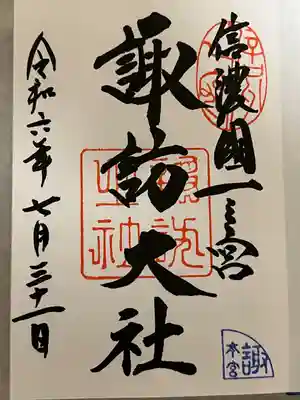 信濃國一之宮
諏訪大社
諏訪大社
令和六年七月三十一日
諏
本宮